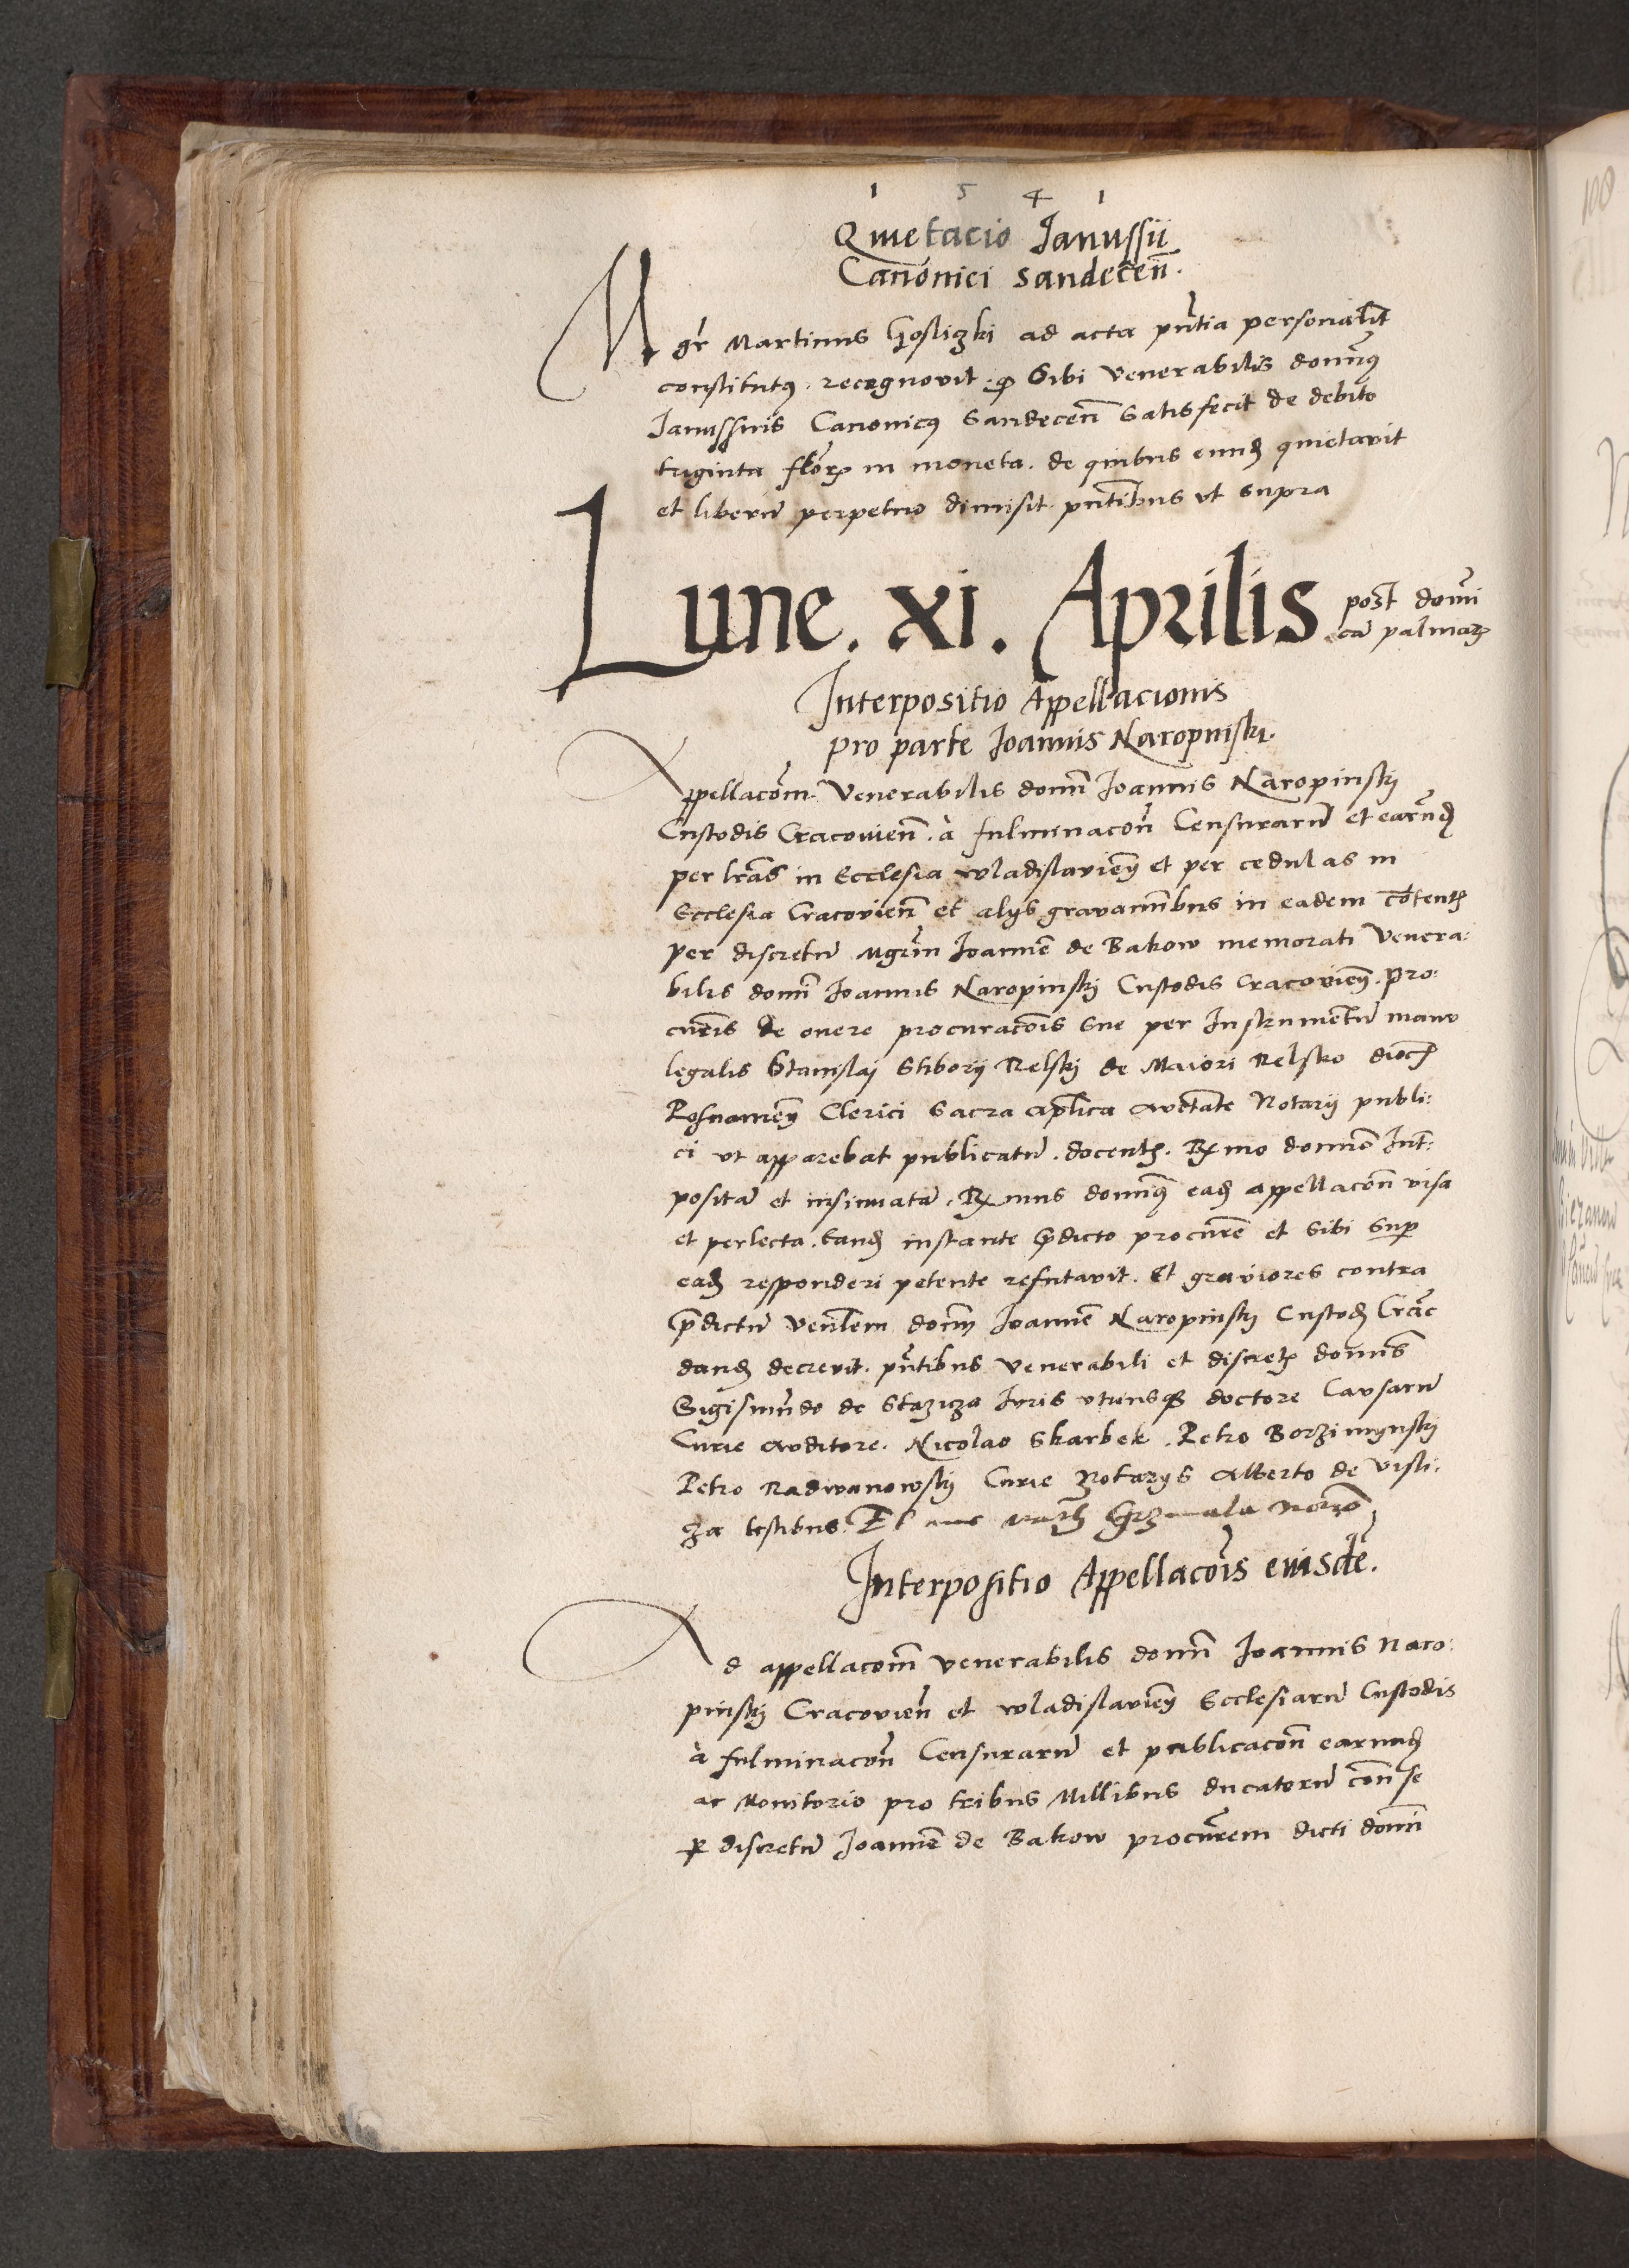 1 5 4 1
Quietacio Janussii
Canonici Sandecen̄.
Mgr̄ Martinus Gosliczki ad acta pn̄tia personalit̄
constitutꝰ. recognovit. ꝙ Sibi Venerabilis domn̄ꝰ
Janussius Canonicꝰ Sandecen̄ Satisfecit de debito
triginta flōrꝝ in moneta. de quibus eundꝫ quietavit
et liberū perpetuo dimisit. pn̄tibus ut supra
Lune. xi. Aprilis. post domi
ca palmarꝝ
Interpositio Appellacionis
pro parte Joannis Naropinski.
Appellacōm̄ Venerabilis domn̄ Joannis Naropinskÿ
Custodis Cracovien̄. à fulminacōn̄ Censurarū et earūdꝫ
per lrās in Ecclesia wladislavien̄ et per cedulas in
Ecclesia Cracovien̄ et alijs gravaminibus in eadem cōtentꝭ
per discretū Mgr̄m Joannē de Bakow memorati Venera:
bilis domn̄ Joannis Naropinskÿ Custodis Cracovien̄. pro:
cur̄is de onere procuracōis sue per Instrumentū manu
legalis Stanislaj Stiborij Relskÿ de Maiori Relsko diocꝭ
Posnanien̄ Clerici Sacra aplīca auctāte Notarij publi:
ci ut apparebat publicatū. docentꝭ. Rx̄mo domno Int̄:
positā et insinuatā. Rx̄mus domnꝰ eadꝫ appellacōn̄ visa
et perlecta. Eandꝫ instante p̄dicto procur̄e et sibi sup̱
eadꝫ responderi petente refutavit. Et graviores contra
p̄dictū Ven̄lem domn̄ Joannē Naropinskÿ Custodꝫ Crac̄
dandꝫ decrevit. pn̄tibus venerabili et discretꝭ domn̄is
Sigismūdo de Stazicza Juris utriusqꝫ doctore Causarū
Curie auditore. Nicolao Skarbek. Petro Borzimynskÿ
Petro Radwanowskÿ Curie Notarijs Alberto de Visli:
za testibus. Et me Grzimala
Interpositio Appellacōis eiusdē.
Ad appellacōm̄ venerabilis domn̄ Joannis Naro:
pinskÿ Cracovien̄ et wladislavien̄ Ecclesiarū Custodis
à fulminacōn̄ Censurarū et publicacōn̄ earundꝫ
ac Monitorio pro tribus Millibus ducatorū con̄ se
ꝑ discretū Joannē de Bakow procur̄em dicti domn̄